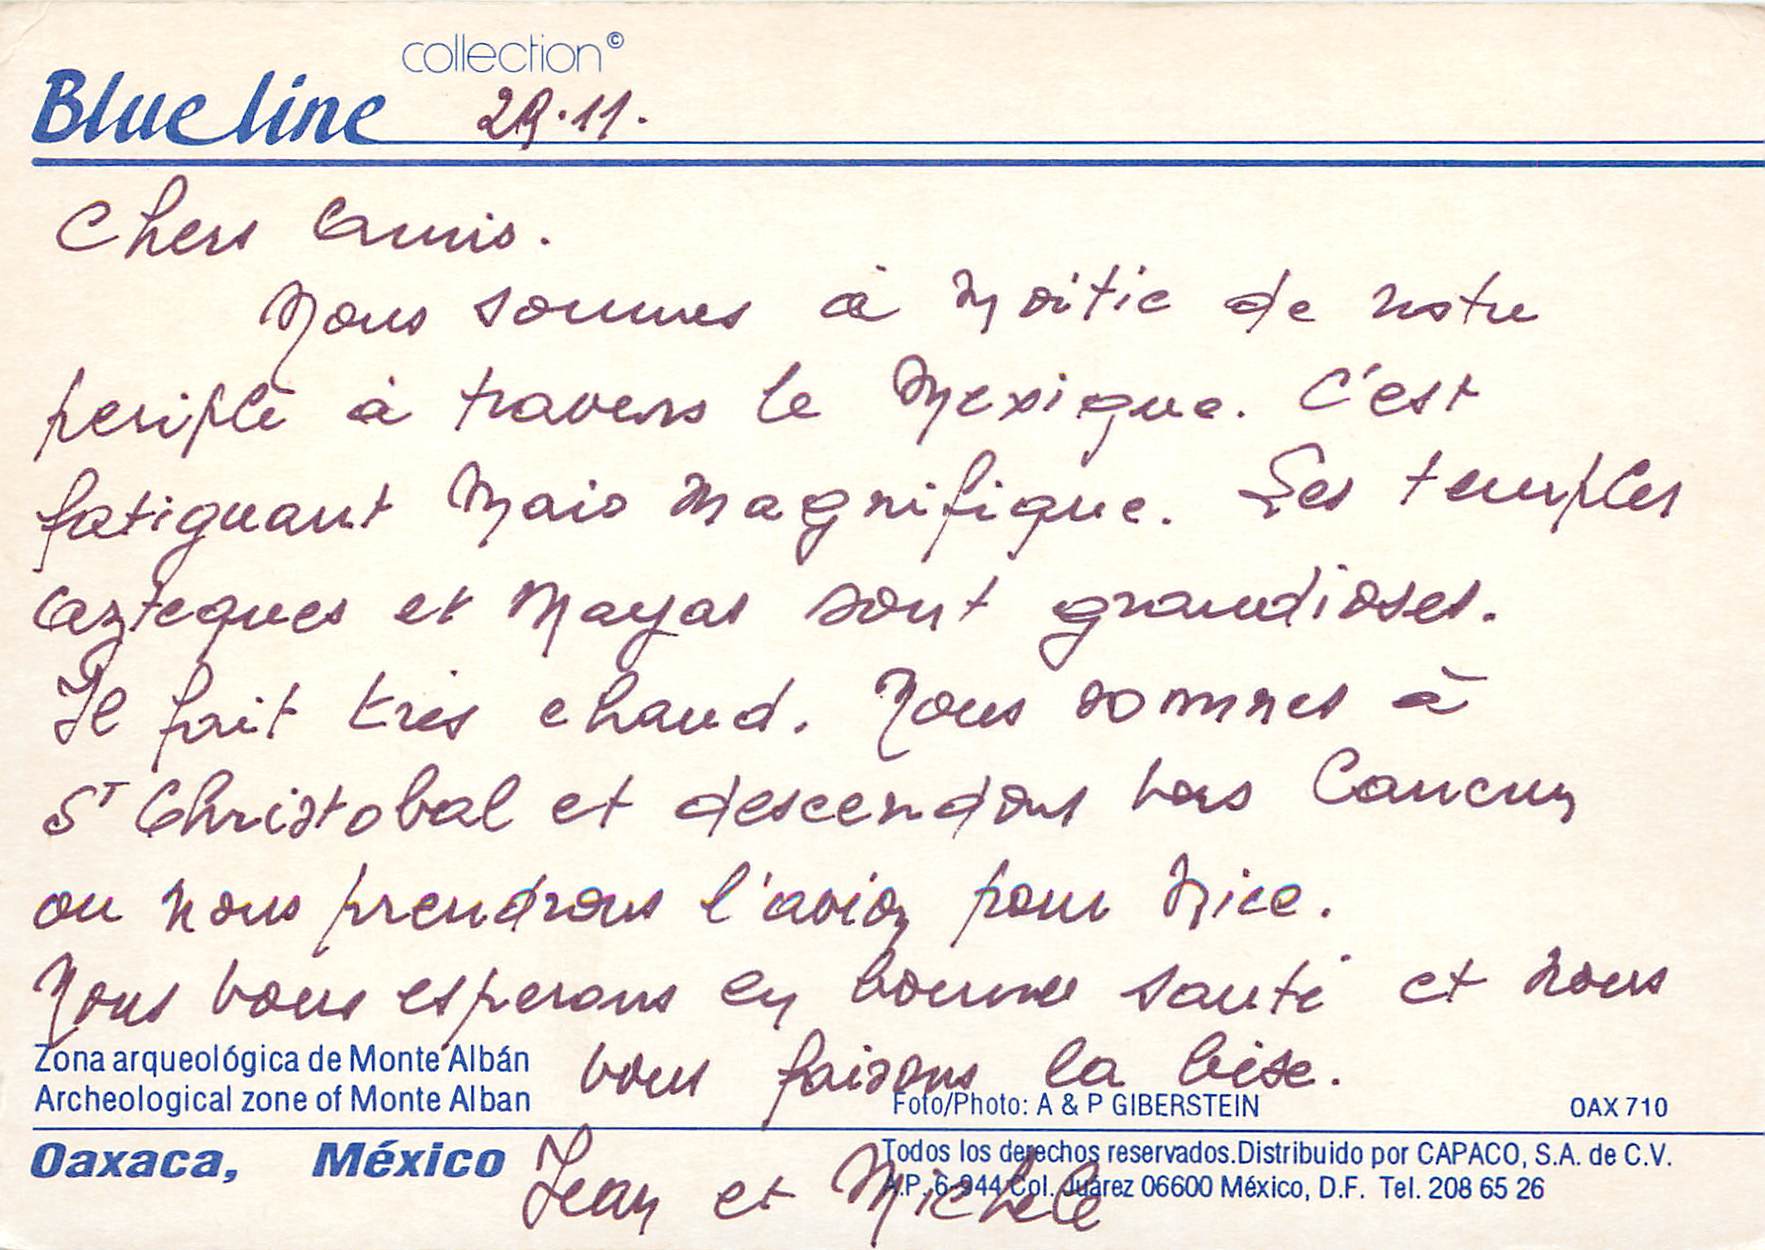 collection©
Blue line 29.11.
Chers amis.
Nous sommes à moitie de notre
periple à travers le Mexique. C'est
fatiguant mais magnifique. Les temples
azteques et Mayas sont grandioses.
Il fait très chaud. Nous sommes à
ST Christobal et descendons vers Cancun
ou nous prendrons l'avion pour Nice.
Nous vous esperons en bonne santé et nous
vous faisons la bise.
Zona arqueológica de Monte Albán
Archeological zone of Monte Alban
Foto/Photo: A & P GIBERSTEIN OAX 710
Oaxaca, México
Jean et Michele
Todos los derechos reservados. Distribuido por CAPACO, S.A. de C.V.
A.P. 6-944 Col. Juárez 06600 México, D.F. Tel. 208 65 26